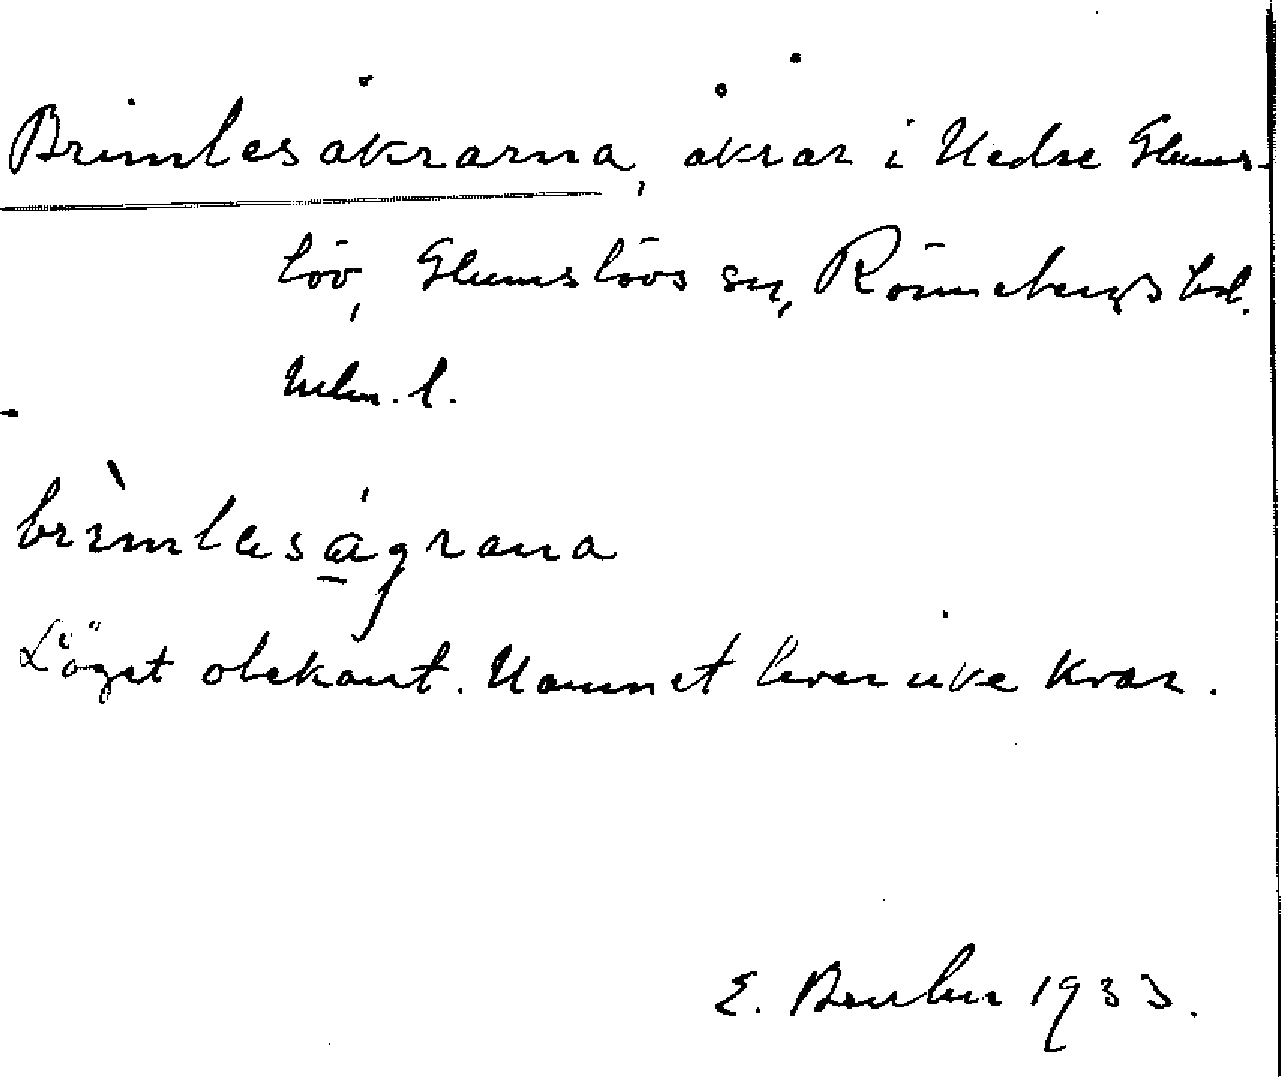 Brimlesåkrarna, åkrar i Nedre Glums-
löv, Glumslövs sn, Rönnebergs hd.
Mlm. l.
brìmlesågrana
Läget obekant. Namnet lever icke kvar.
E. 1933.